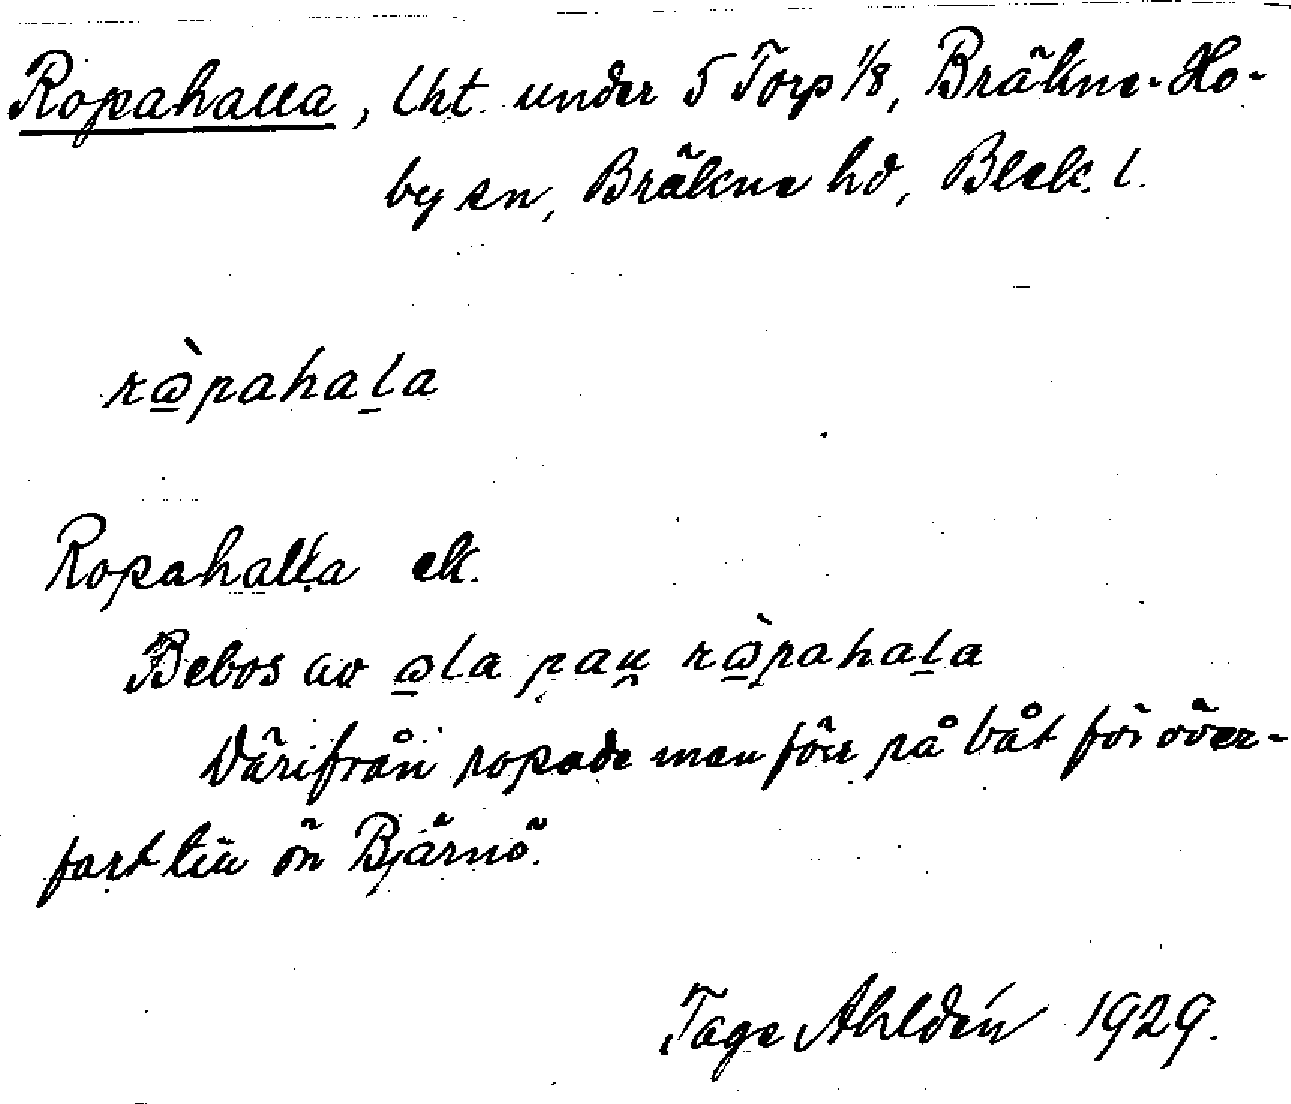 Ropahalla, lht under 5 Torp 1/8, Bräkne-Ho-
by sn, Bräkne hd, Blek. l.
rⱥ̀pahaḻa
Ropahalla ek.
Bebos av a̲la pau̯ rà̲pahaḻa
Därifrån ropade man förr på båt för över-
fart till ön Björnö.
Tage Ahldén 1929.